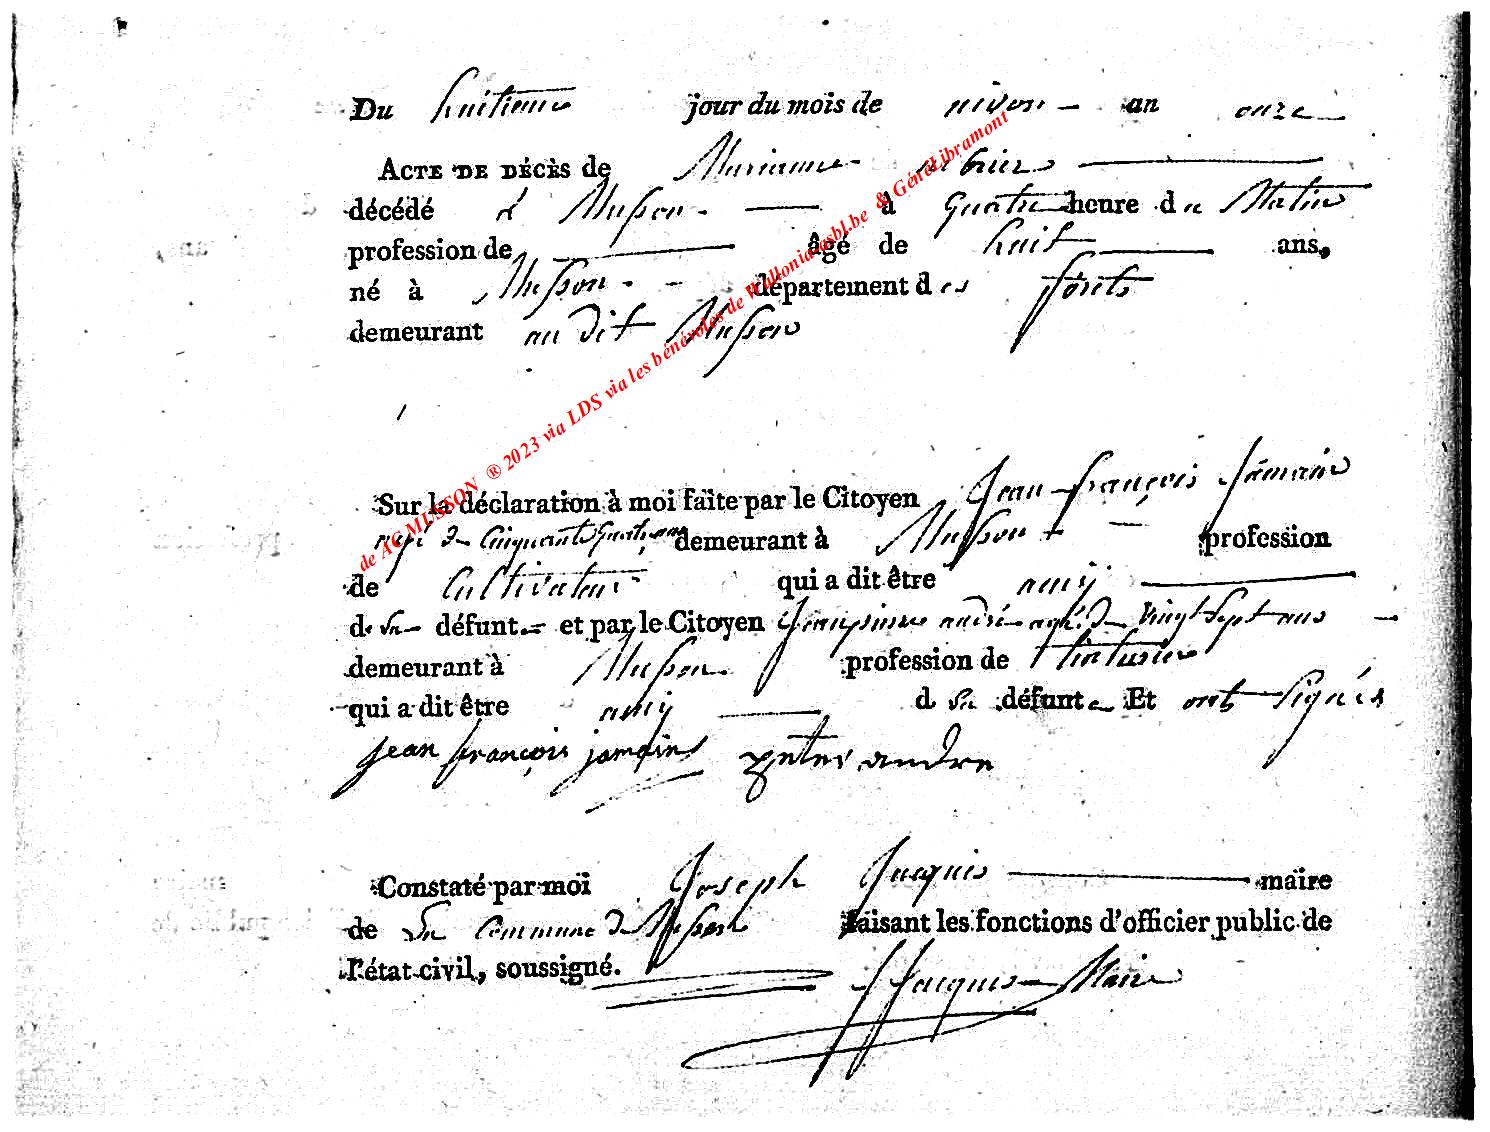 Du huitieme jour du mois de nivose an onze
ACTE DE DÉCÈS de Marianne
décédé à Musson à quatre heure du Matin
profession de âgé de huit ans,
né à Musson département des forêts
demeurant au dit Musson
Sur la déclaration à moi faite par le Citoyen Jean françois Jamain
agé de Cinquante quatre ans demeurant à Musson profession
de Cultivateur qui a dit être amÿ
de la défunte et par le Citoyen Jean pierre andré agé de vingt Sept ans
demeurant à Musson profession de
qui a dit être amÿ de la défunte Et ont Signés
jean françois jamains andre
Constaté par moi Joseph Jacquis maire
de La Commune de Musson faisant les fonctions d'officier public de
l'état civil, soussigné. JJacquis Maire
de AC MUSSON ® 2023 via LDS via les bénévoles de Wallonia asbl.be & GénéLibramont